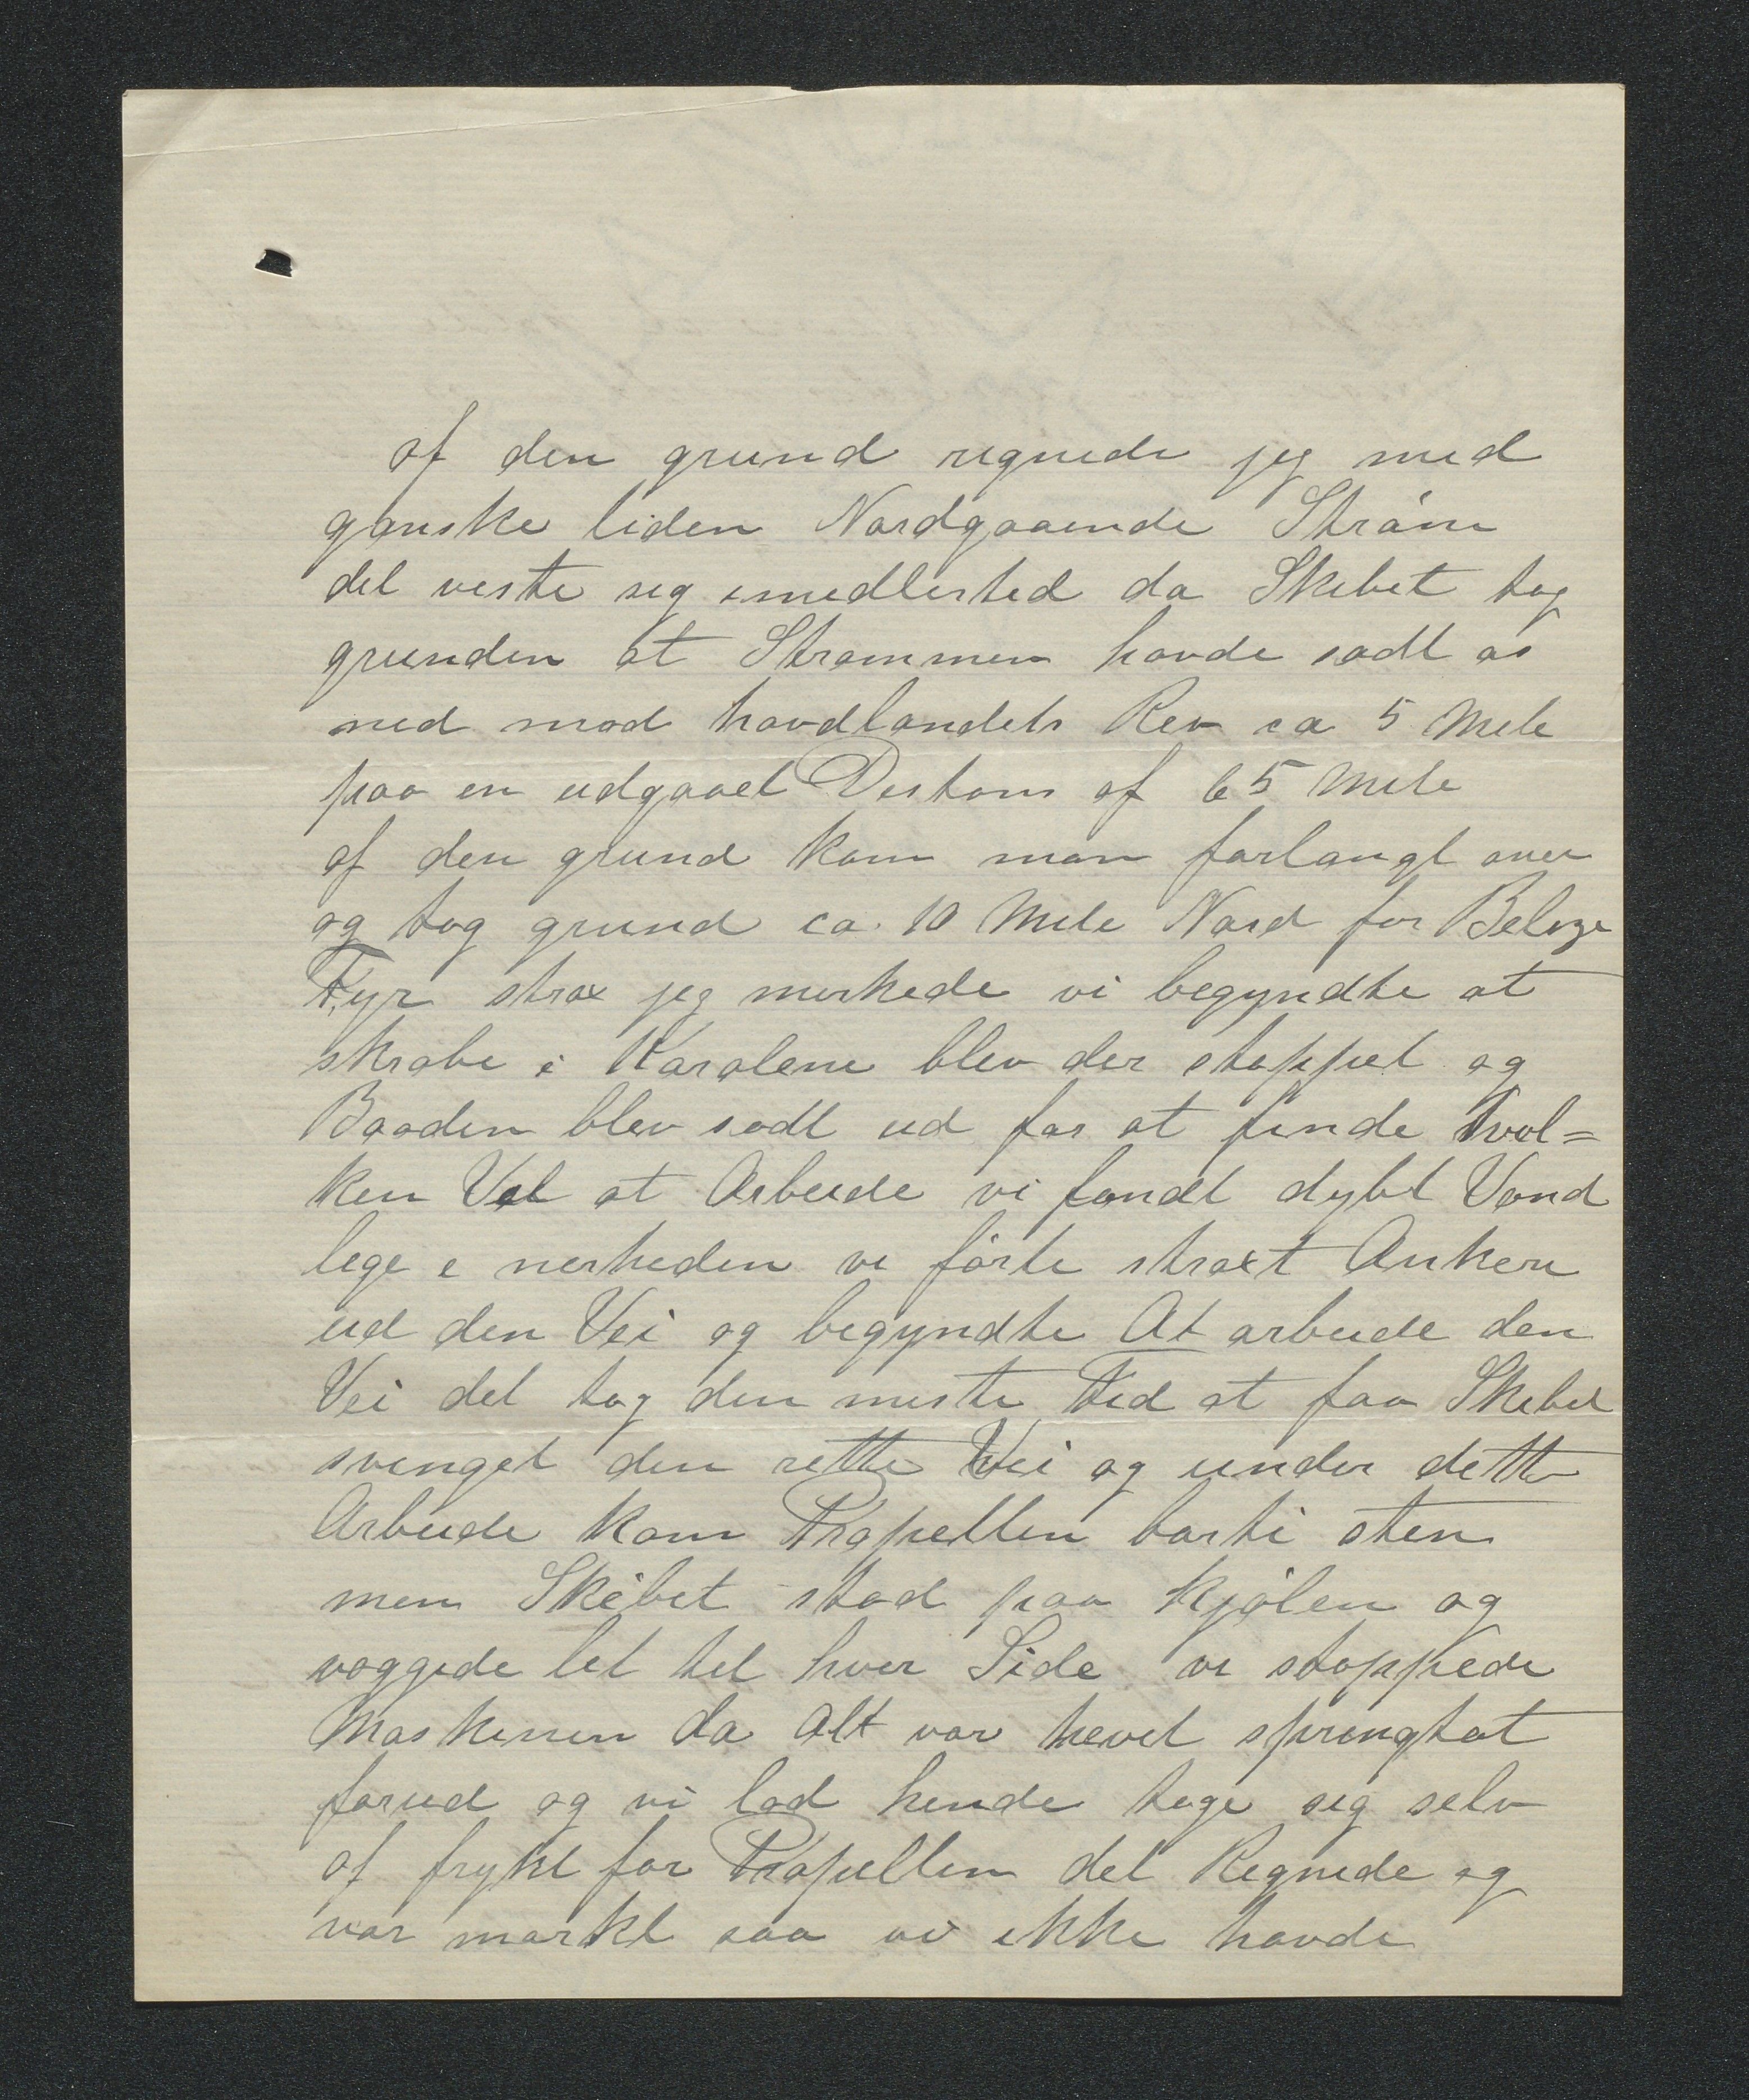 af den grund regnede jeg med
ganske liden Nordgaaende Strøm
det viste sig imedlertid da Skibet tog
grunden at Strømmen havde sadt os
ned mod hovdlandets Rev ca 5 Mile
paa en udgaaet Distans af 65 Mile
af den grund kom man forlangt over
og tog grund ca. 10 Mile Nord for Belize
Fyr strax jeg merkede vi begyndte at
skrabe i Karalene blev der stoppet og
Baaden blev sadt ud for at finde hvil=
ken Vei at Arbeide vi fandt dybt Vand
lige i nerheden vi førte straxt Ankere
ud den Vei og begyndte At arbeide den
Vei det tog den meste Tid at faa Skibet
svinget den rette Vei og under dette
Arbeide kom Propellen borti sten
men Skibet stod paa kjølen og
vaggede let til hver Side vi stoppede
Maskinen da Alt var hevet springtat
forud og vi lod hende tage sig selv
af frykt for Propellen det Regnede og
var markt saa vi ikke havde